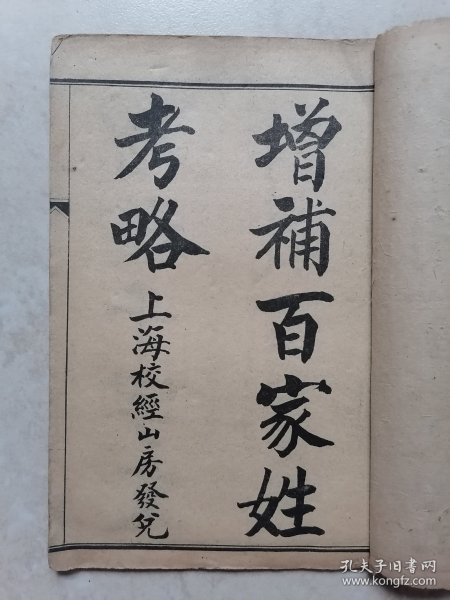 增補百家姓
考略
上海校經山房發兌
孔夫子旧书网
www.kongfz.com